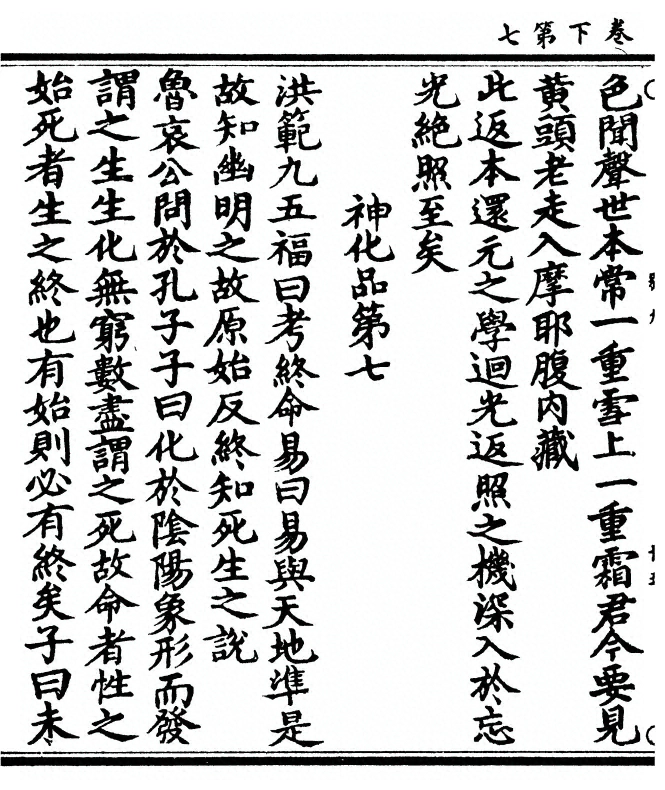 卷下第七
色聞聲世本常一重雪上一重霜君今要見
黃頭老走入摩耶腹內藏
此返本還元之學迴光返照之機深入於忘
光絶照至矣
神化品第七
洪範九五福曰考終命易曰易與天地準是
故知幽明之故原始反終知死生之說
魯哀公問於孔子子曰化於陰陽象形而發
謂之生生化無窮數盡謂之死故命者性之
始死者生之終也有始則必有終矣子曰未